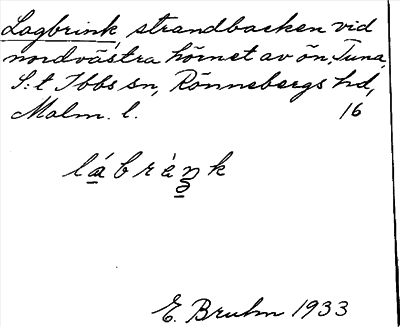 Lagbrink, strandbacken vid
nordvästra hörnet av ön, Tuna,
S:t Ibbs sn, Rönnebergs hd,
Malm. l. 16
lábrèŋk
E. Bruhn 1933